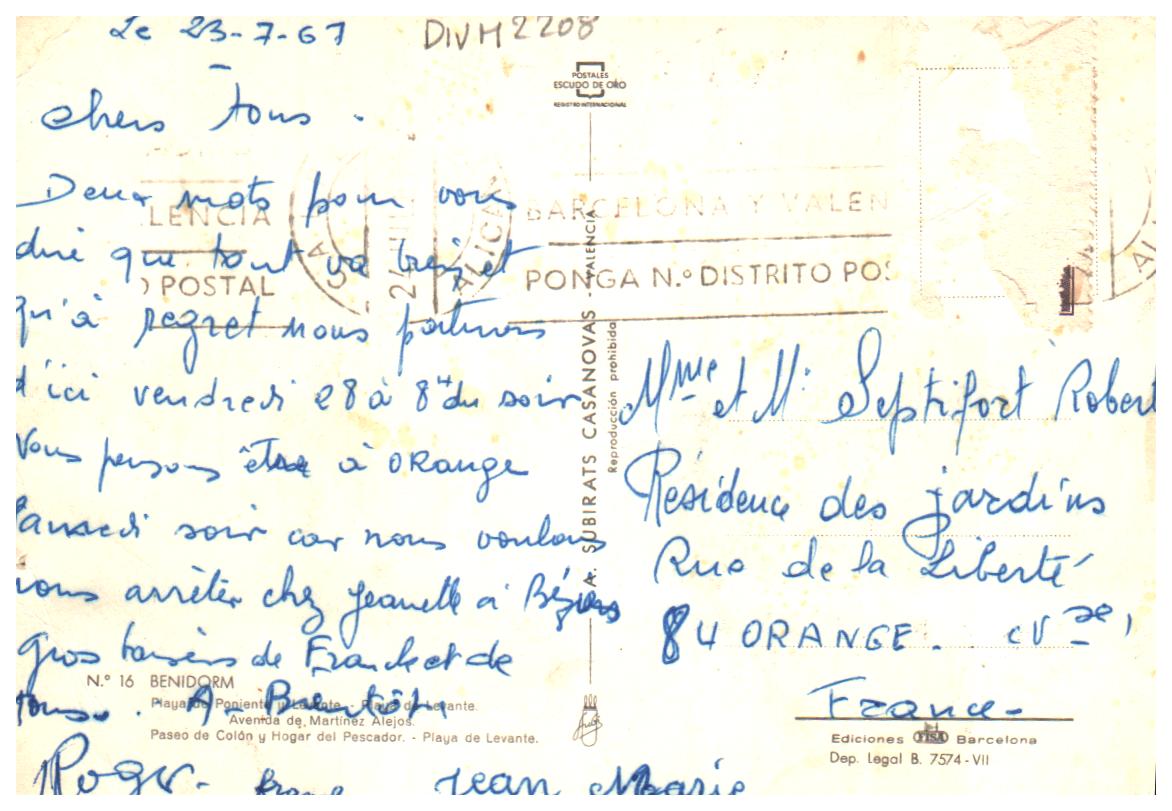 Le 23-7-67
DIVM2208
chers tous.
Deux mots pour vous
dire que tout va bien et
qu'à regret nous partirons
d'ici vendredi 28 à 8H du soir
Nous pensons être à ORange
samedi soir car nous voulons
nous arrêter chez Jeanette à Béziers
Gros baisers de Franck et de
tous. A-Bientôt
Roger - Jean Marie
POSTALES
ESCUDO DE ORO
REGISTRO INTERNACIONAL
LENCIA
O POSTAL
ALICAN
BARCELONA Y VALEN
PONGA N.º DISTRITO POS
A. SUBIRATS CASANOVAS - VALENCIA
Reproducción prohibida
Mme et Mr Septifort Robert
Résidence des jardins
Rue de la Liberté
84 ORANGE. (Vse)
France-
N.º 16 BENIDORM
Playa de Poniente y Levante. - Playa de Levante.
Avenida de Martínez Alejos.
Paseo de Colón y Hogar del Pescador. - Playa de Levante.
Ediciones FISA Barcelona
Dep. Legal B. 7574-VII